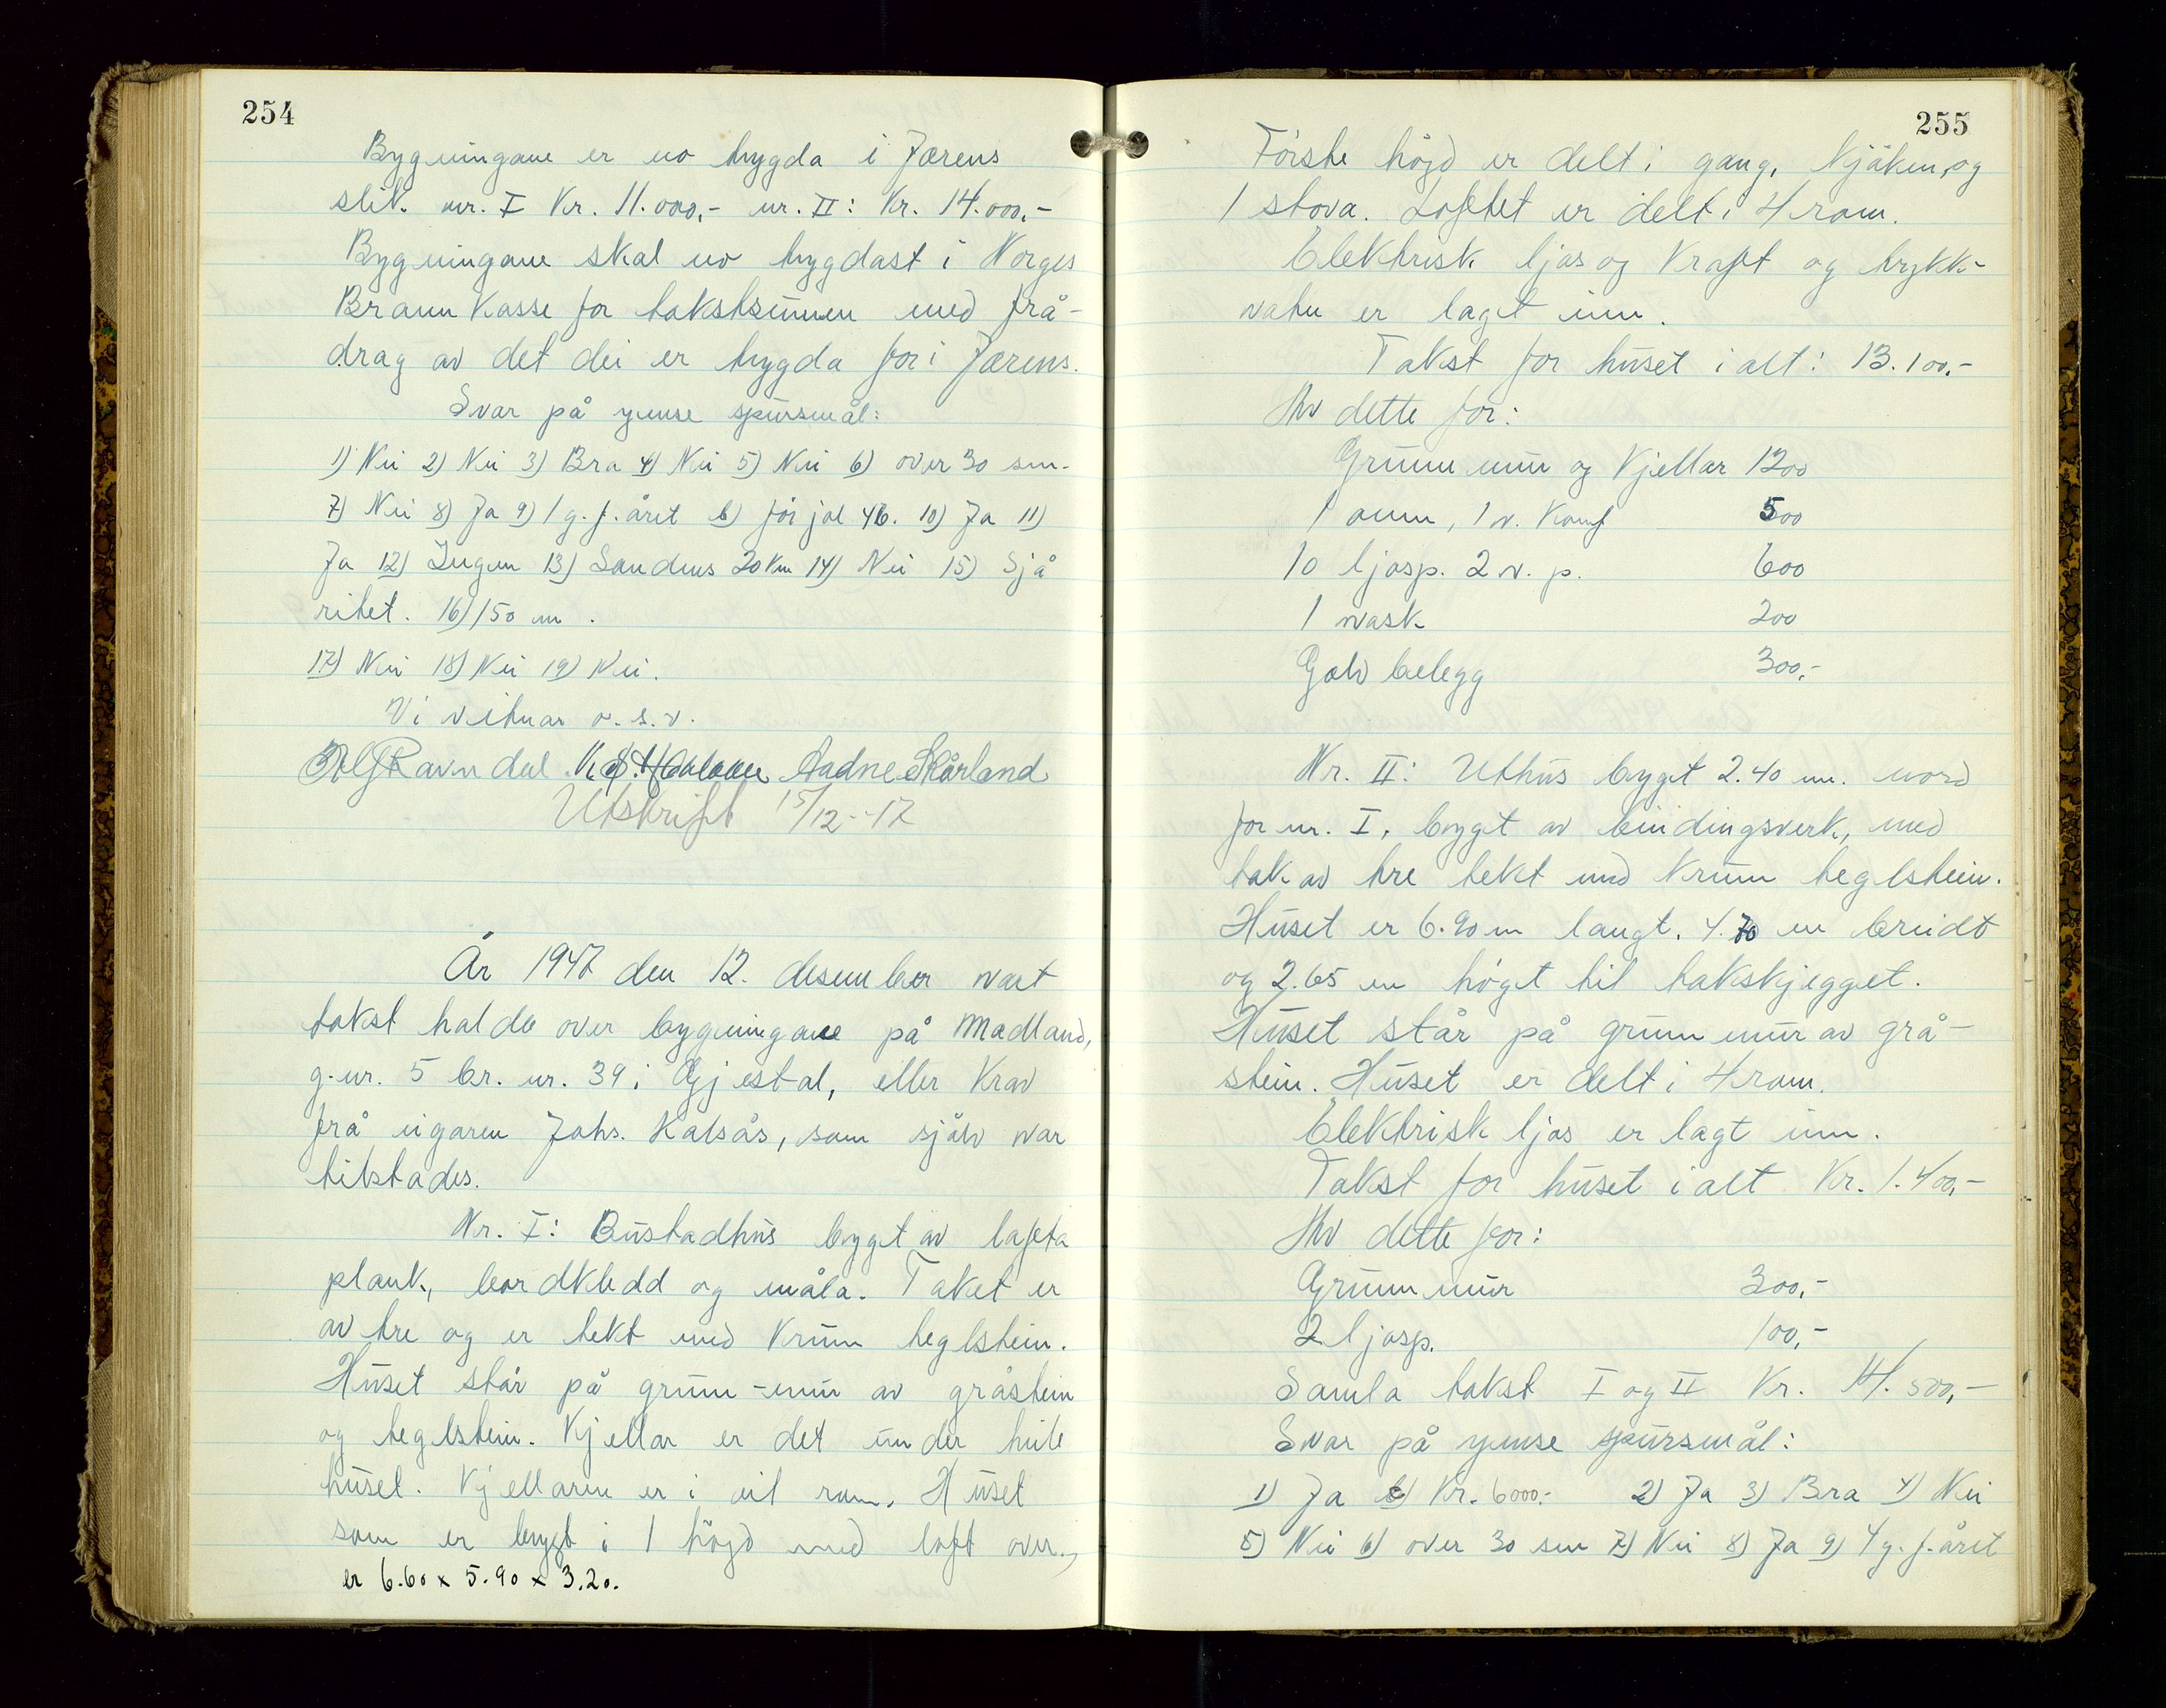 254
Bygningane er no trygda i Jærens
slik nr. I Kr. 11.000,- nr. II: Kr. 14.000,-
Bygningane skal no trygdast i Norges
Brannkasse for takstsummen med frå-
drag av det dei er trygda for i Jærens.
Svar på ymse spursmål:
1) Nei 2) Nei 3) Bra 4) Nei 5) Nei 6) over 30 sm.
7) Nei 8) Ja 9) 1 g. f. året b) för jol 46. 10) Ja 11)
Ja 12) Ingen 13) Sandnes 20 km 14) Nei 15) Sjå
ritet. 16) 150 m.
17) Nei 18) Nei 19) Nei.
Vi vitnar o. s. v.
Ravndal Aadne Skårland
Utskrift 15/12-47
År 1947 den 12. desember vart
takst halde over bygningane på Madland,
g.nr. 5 br. nr. 39 i Gjestal, etter krav
frå eigaren Johs. Kalsås, som sjålv var
tilstades.
Nr. I: Bustadhus bygt av lafta
plank, bordkledd og måla. Taket er
av tre og er tekt med krum teglstein.
Huset står på grunn-mur av gråstein
og teglstein. Kjellar er det under heile
huset. Kjellaren er i eit rom. Huset
som er bygt i 1 högd med loft over,
er 6.60 x 5.90 x 3.20.
255
Förste högd er delt i gang, kjöken, og
1 stova. Loftet er delt i 4 rom.
Elektrisk ljos og kraft og trykk-
vatn er lagt inn.
Takst for huset i alt: 13.100,-
Av dette for:
Grunnmur og kjellar 1200
1 omn, 1 v. komf 500
10 ljosp. 2 v. p. 600
1 vask 200
Golvbelegg 300,-
Nr. II: Uthus bygt 2.40 m. nord
for nr. I, bygt av bindingsverk, med
tak av tre tekt med krum teglstein.
Huset er 6.90 m langt, 4.70 m breidt
og 2.65 m högt til takskjegget.
Huset står på grunnmur av grå-
stein. Huset er delt i 4 rom.
Elektrisk ljos er lagt inn.
Takst for huset i alt Kr. 1.400,-
Av dette for:
Grunnmur 300,-
2 ljosp. 100,-
Samla takst I og II Kr. 14.500,-
Svar på ymse spursmål:
1) Ja b) Kr. 6000.- 2) Ja 3) Bra 4) Nei
5) Nei 6) over 30 sm 7) Nei 8) Ja 9) 4 g. f. året